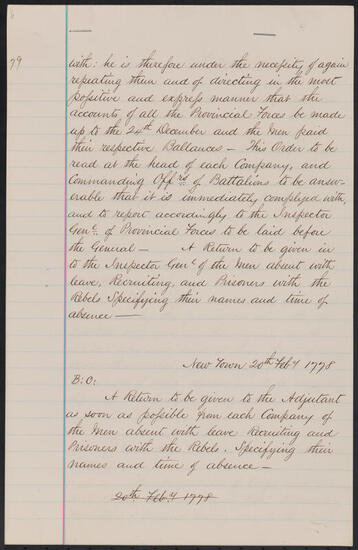 79
with: he is therefore under the necessity of again
repeating them and of directing in the most
possitive and express manner that the
accounts of all the Provincial Forces be made
up to the 24th December and the Men paid
their respective Ballances — This Order to be
read at the head of each Company, and
Commanding Offrs of Battalions to be answ-
erable that it is immediately complyed with,
and to report accordingly to the Inspector
Genl of Provincial Forces to be laid before
the General — A Return to be given in
to the Inspector Genl of the Men absent with
leave, Recruiting, and Prisoners with the
Rebels Specifying their names and time of
absence —
New Town 20th Feby 1778
B: O:
A Return to be given to the Adjutant
as soon as possible from each Company of
the Men absent with leave Recruiting and
Prisoners with the Rebels. Specifying their
names and time of absence —
20th Feby 1778